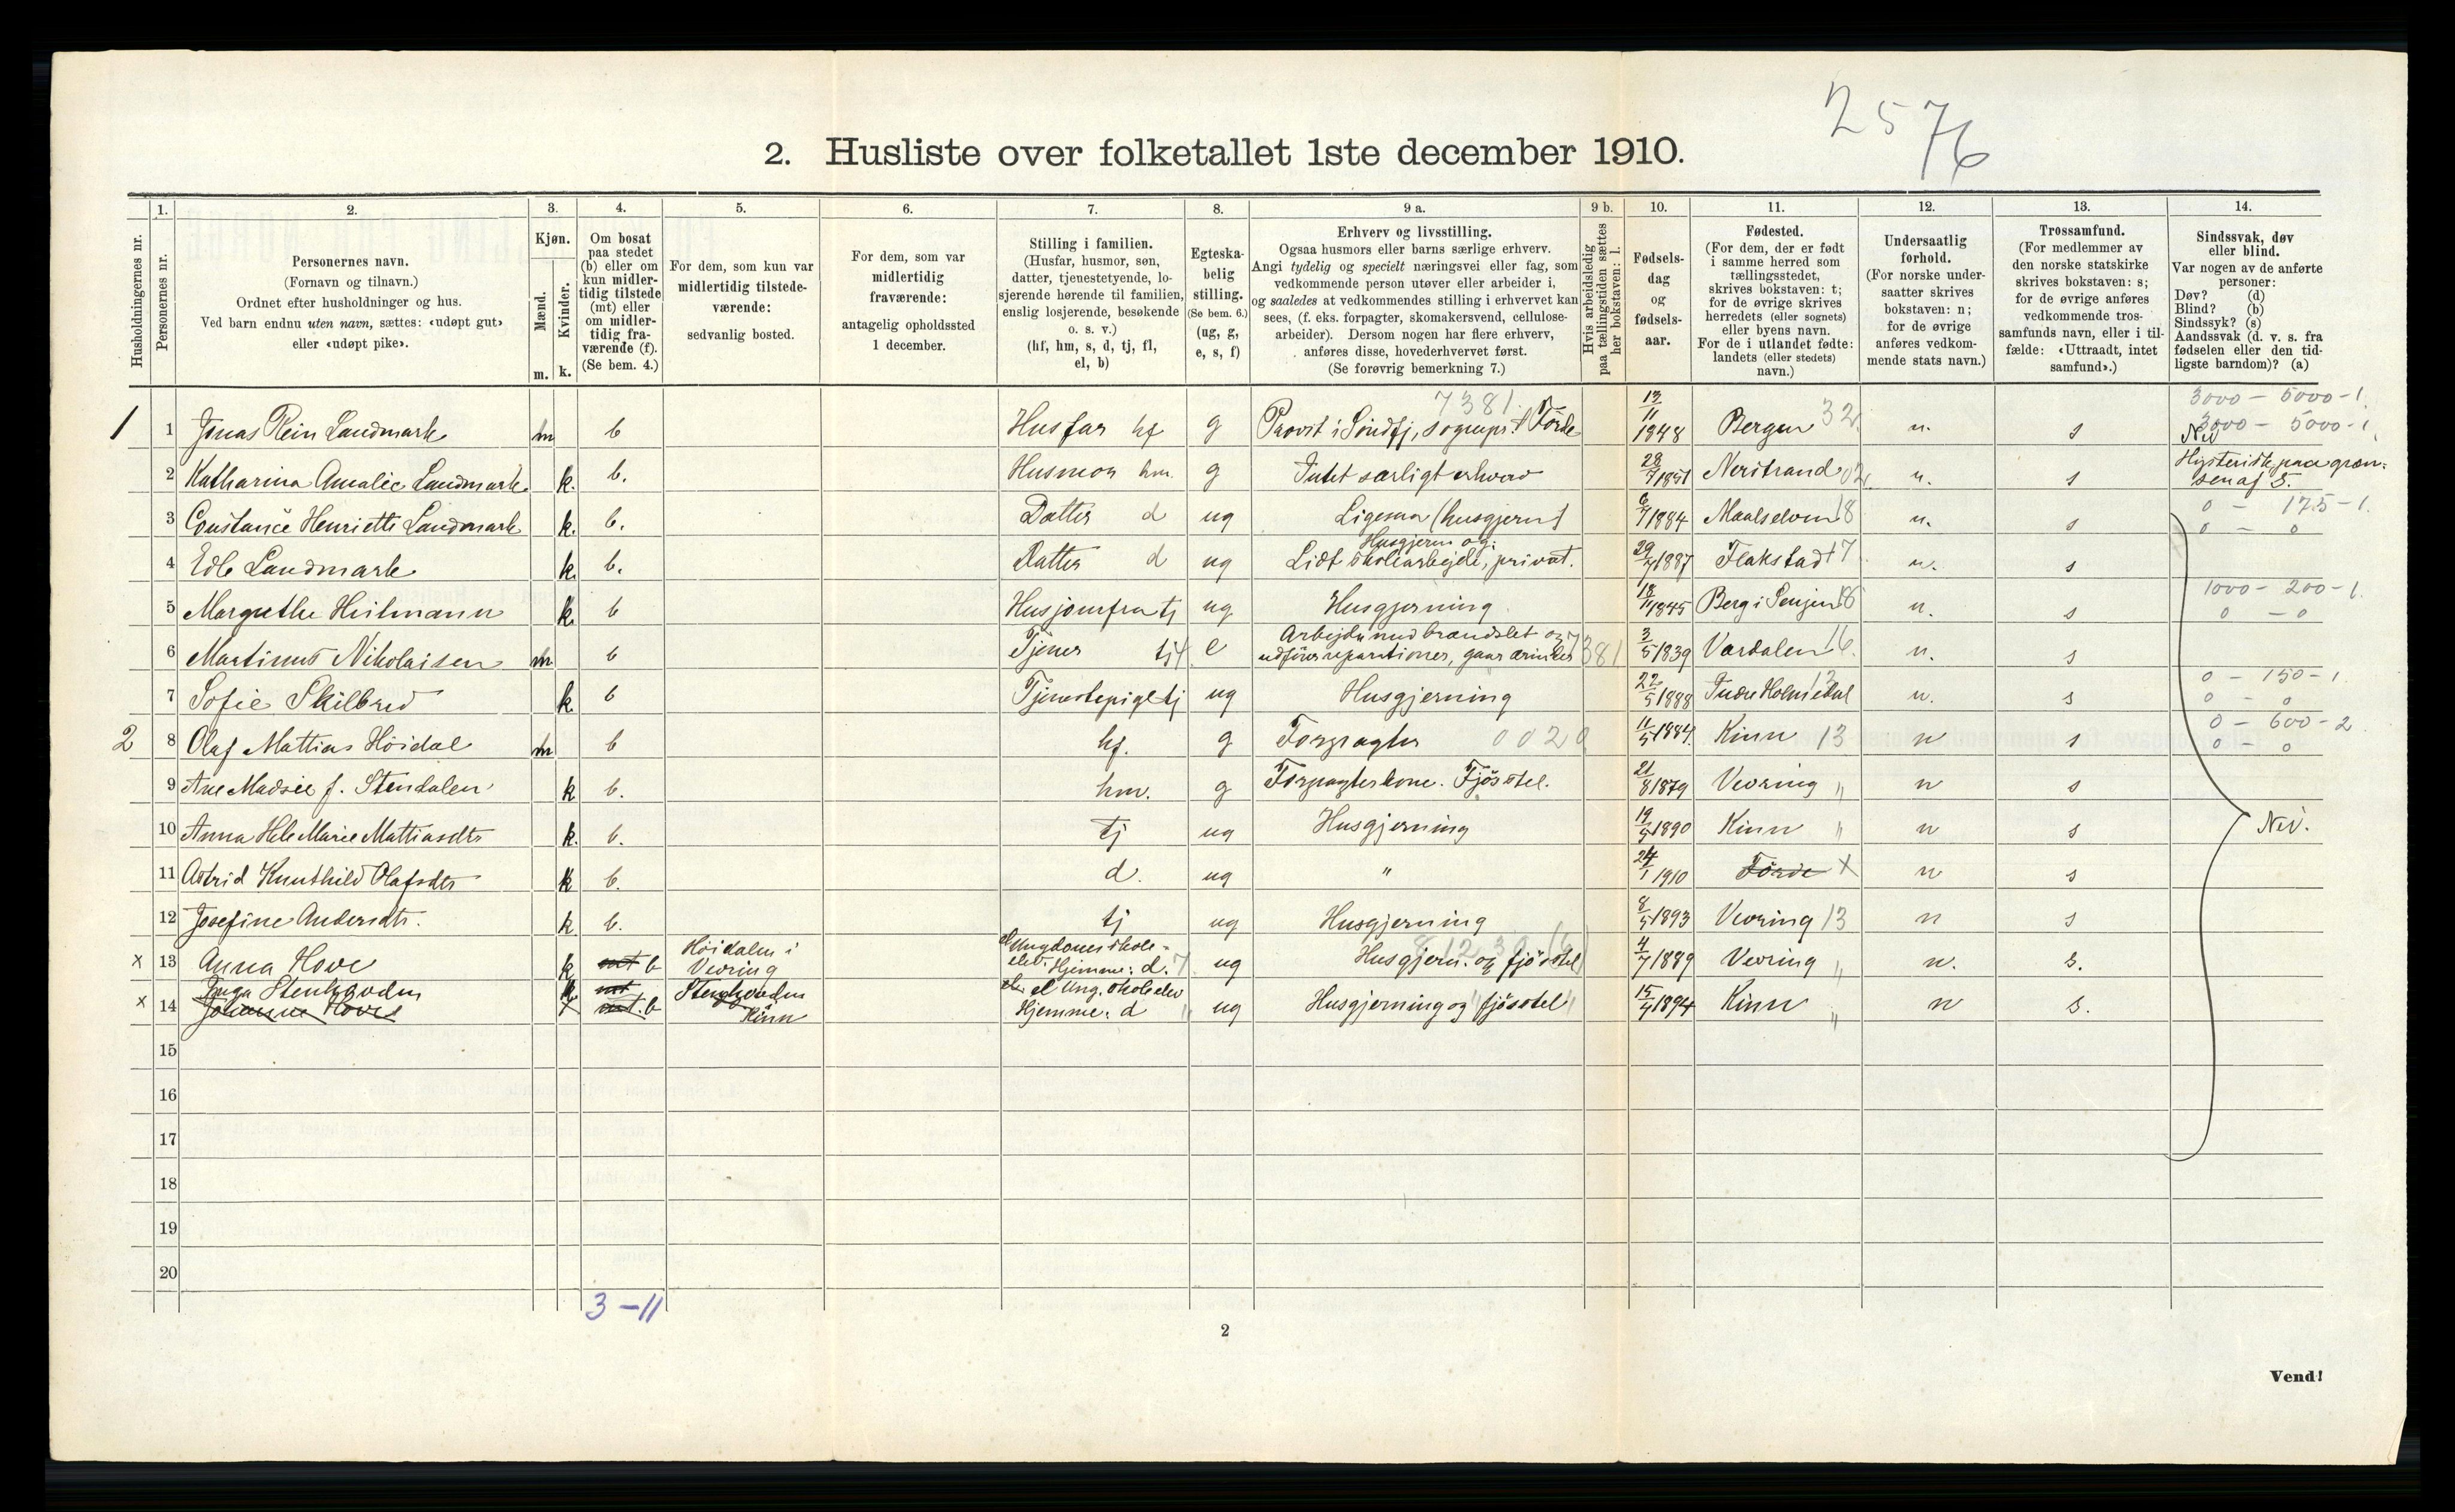 2576
2. Husliste over folketallet 1ste december 1910.
Husholdningernes nr.
1.
Personernes nr.
2.
Personernes navn.
(Fornavn og tilnavn.)
Ordnet efter husholdninger og hus.
Ved barn endnu uten navn, sættes: «udøpt gut»
eller «udøpt pike».
3.
Kjøn.
Mænd.
Kvinder.
m. k.
4.
Om bosat
paa stedet
(b) eller om
kun midler-
tidig tilstede
(mt) eller
om midler-
tidig fra-
værende (f).
(Se bem. 4.)
5.
For dem, som kun var
midlertidig tilstede-
værende:
sedvanlig bosted.
6.
For dem, som var
midlertidig
fraværende:
antagelig opholdssted
1 december.
7.
Stilling i familien.
(Husfar, husmor, søn,
datter, tjenestetyende, lo-
sjerende hørende til familien,
enslig losjerende, besøkende
o. s. v.)
(hf, hm, s, d, tj, fl,
el, b)
8.
Egteska-
belig
stilling.
(Se bem. 6.)
(ug, g,
e, s, f)
9 a.
Erhverv og livsstilling.
Ogsaa husmors eller barns særlige erhverv.
Angi tydelig og specielt næringsvei eller fag, som
vedkommende person utøver eller arbeider i,
og saaledes at vedkommendes stilling i erhvervet kan
sees, (f. eks. forpagter, skomakersvend, cellulose-
arbeider). Dersom nogen har flere erhverv,
anføres disse, hovederhvervet først.
(Se forøvrig bemerkning 7.)
9 b.
Hvis arbeidsledig
paa tællingstiden sættes
her bokstaven: l.
10.
Fødsels-
dag
og
fødsels-
aar.
11.
Fødested.
(For dem, der er født
i samme herred som
tællingsstedet,
skrives bokstaven: t;
for de øvrige skrives
herredets (eller sognets)
eller byens navn.
For de i utlandet fødte:
landets (eller stedets)
navn.)
12.
Undersaatlig
forhold.
(For norske under-
saatter skrives
bokstaven: n;
for de øvrige
anføres vedkom-
mende stats navn.)
13.
Trossamfund.
(For medlemmer av
den norske statskirke
skrives bokstaven: s;
for de øvrige anføres
vedkommende tros-
samfunds navn, eller i til-
fælde: «Uttraadt, intet
samfund».)
14.
Sindssvak, døv
eller blind.
Var nogen av de anførte
personer:
Døv? (d)
Blind? (b)
Sindssyk? (s)
Aandssvak (d. v. s. fra
fødselen eller den tid-
ligste barndom)? (a)
7381
3000 - 5000 - 1
1 1 Jonas Rein Landmark m b Husfar hf g Provst i Söndfj, sognepr. t. Förde 13/11 1848 Bergen 32 n. s Nei 3000 - 5000 - 1
2 Katharina Amalie Landmark k. b. Husmor hm. g Intet særligt erhverv 28/7 1851 Nerstrand 02 n. s Hysterisk paa græn-
sen af S.
3 Constance Henriette Landmark k. b. Datter d ug Ligesaa (husgjern.) 6/7 1884 Maalselven 18 n. s 0 - 175 - 1
0 - 0
Husgjern og:
4 Edle Landmark k. b. Datter d ug Lidt skolearbejde, privat. 29/7 1887 Flakstad 17 n. s
5 Margrethe Heilmann k. b Husjomfru tj ug Husgjerning 18/11 1845 Berg i Senjen 18 n. s 1000 - 200 - 1
0 - 0
Arbejder med brændslet og
6 Martinus Nikolaisen m b Tjener tj e udfører reparationer, gaar ærinder 7381 3/5 1839 Værdalen 16. n. s
7 Sofie Skilbred k b Tjenestepige tj ug Husgjerning 22/5 1888 Indre Holmedal 13 n. s 0 - 150 - 1
0 - 0
2 8 Olaf Mattias Höidal m b hf. g Forpagter 0020 11/5 1884. Kinn 13 n s 0 - 600 - 2
0 - 0
9 Ane Madsie f. Stendalen k b. hm. g Forpagterkone. Fjösstel. 21/8 1879 Vevring " n s
10 Anna Hele Marie Mattiasdtr k. b. tj ug Husgjerning 19/5 1890 Kinn " n s Nei.
11 Astrid Knuthild Olafsdtr k b. d. ug " 24/1 1910 Förde X n s
12 Josefine Andersdtr. k b. tj ug Husgjerning 8/5 1893 Vevring 13 n s
x 13 Anna Hove k mt b Höidalen i
Vevring
el Ungdomsskole-
elev. Hjemme: d. ug Husgjern. og fjösstel 4/7 1889 Vevring " n. s.
x 14 Inga Stenhovden
Johanne Hove k mt. b Stenhovden
Kinn
el Ung. skoleelev
Hjemme: d ug Husgjerning og fjösstel 15/4 1894 Kinn " n s.
15
16
17
18
19
20
3 - 11
2
Vend!